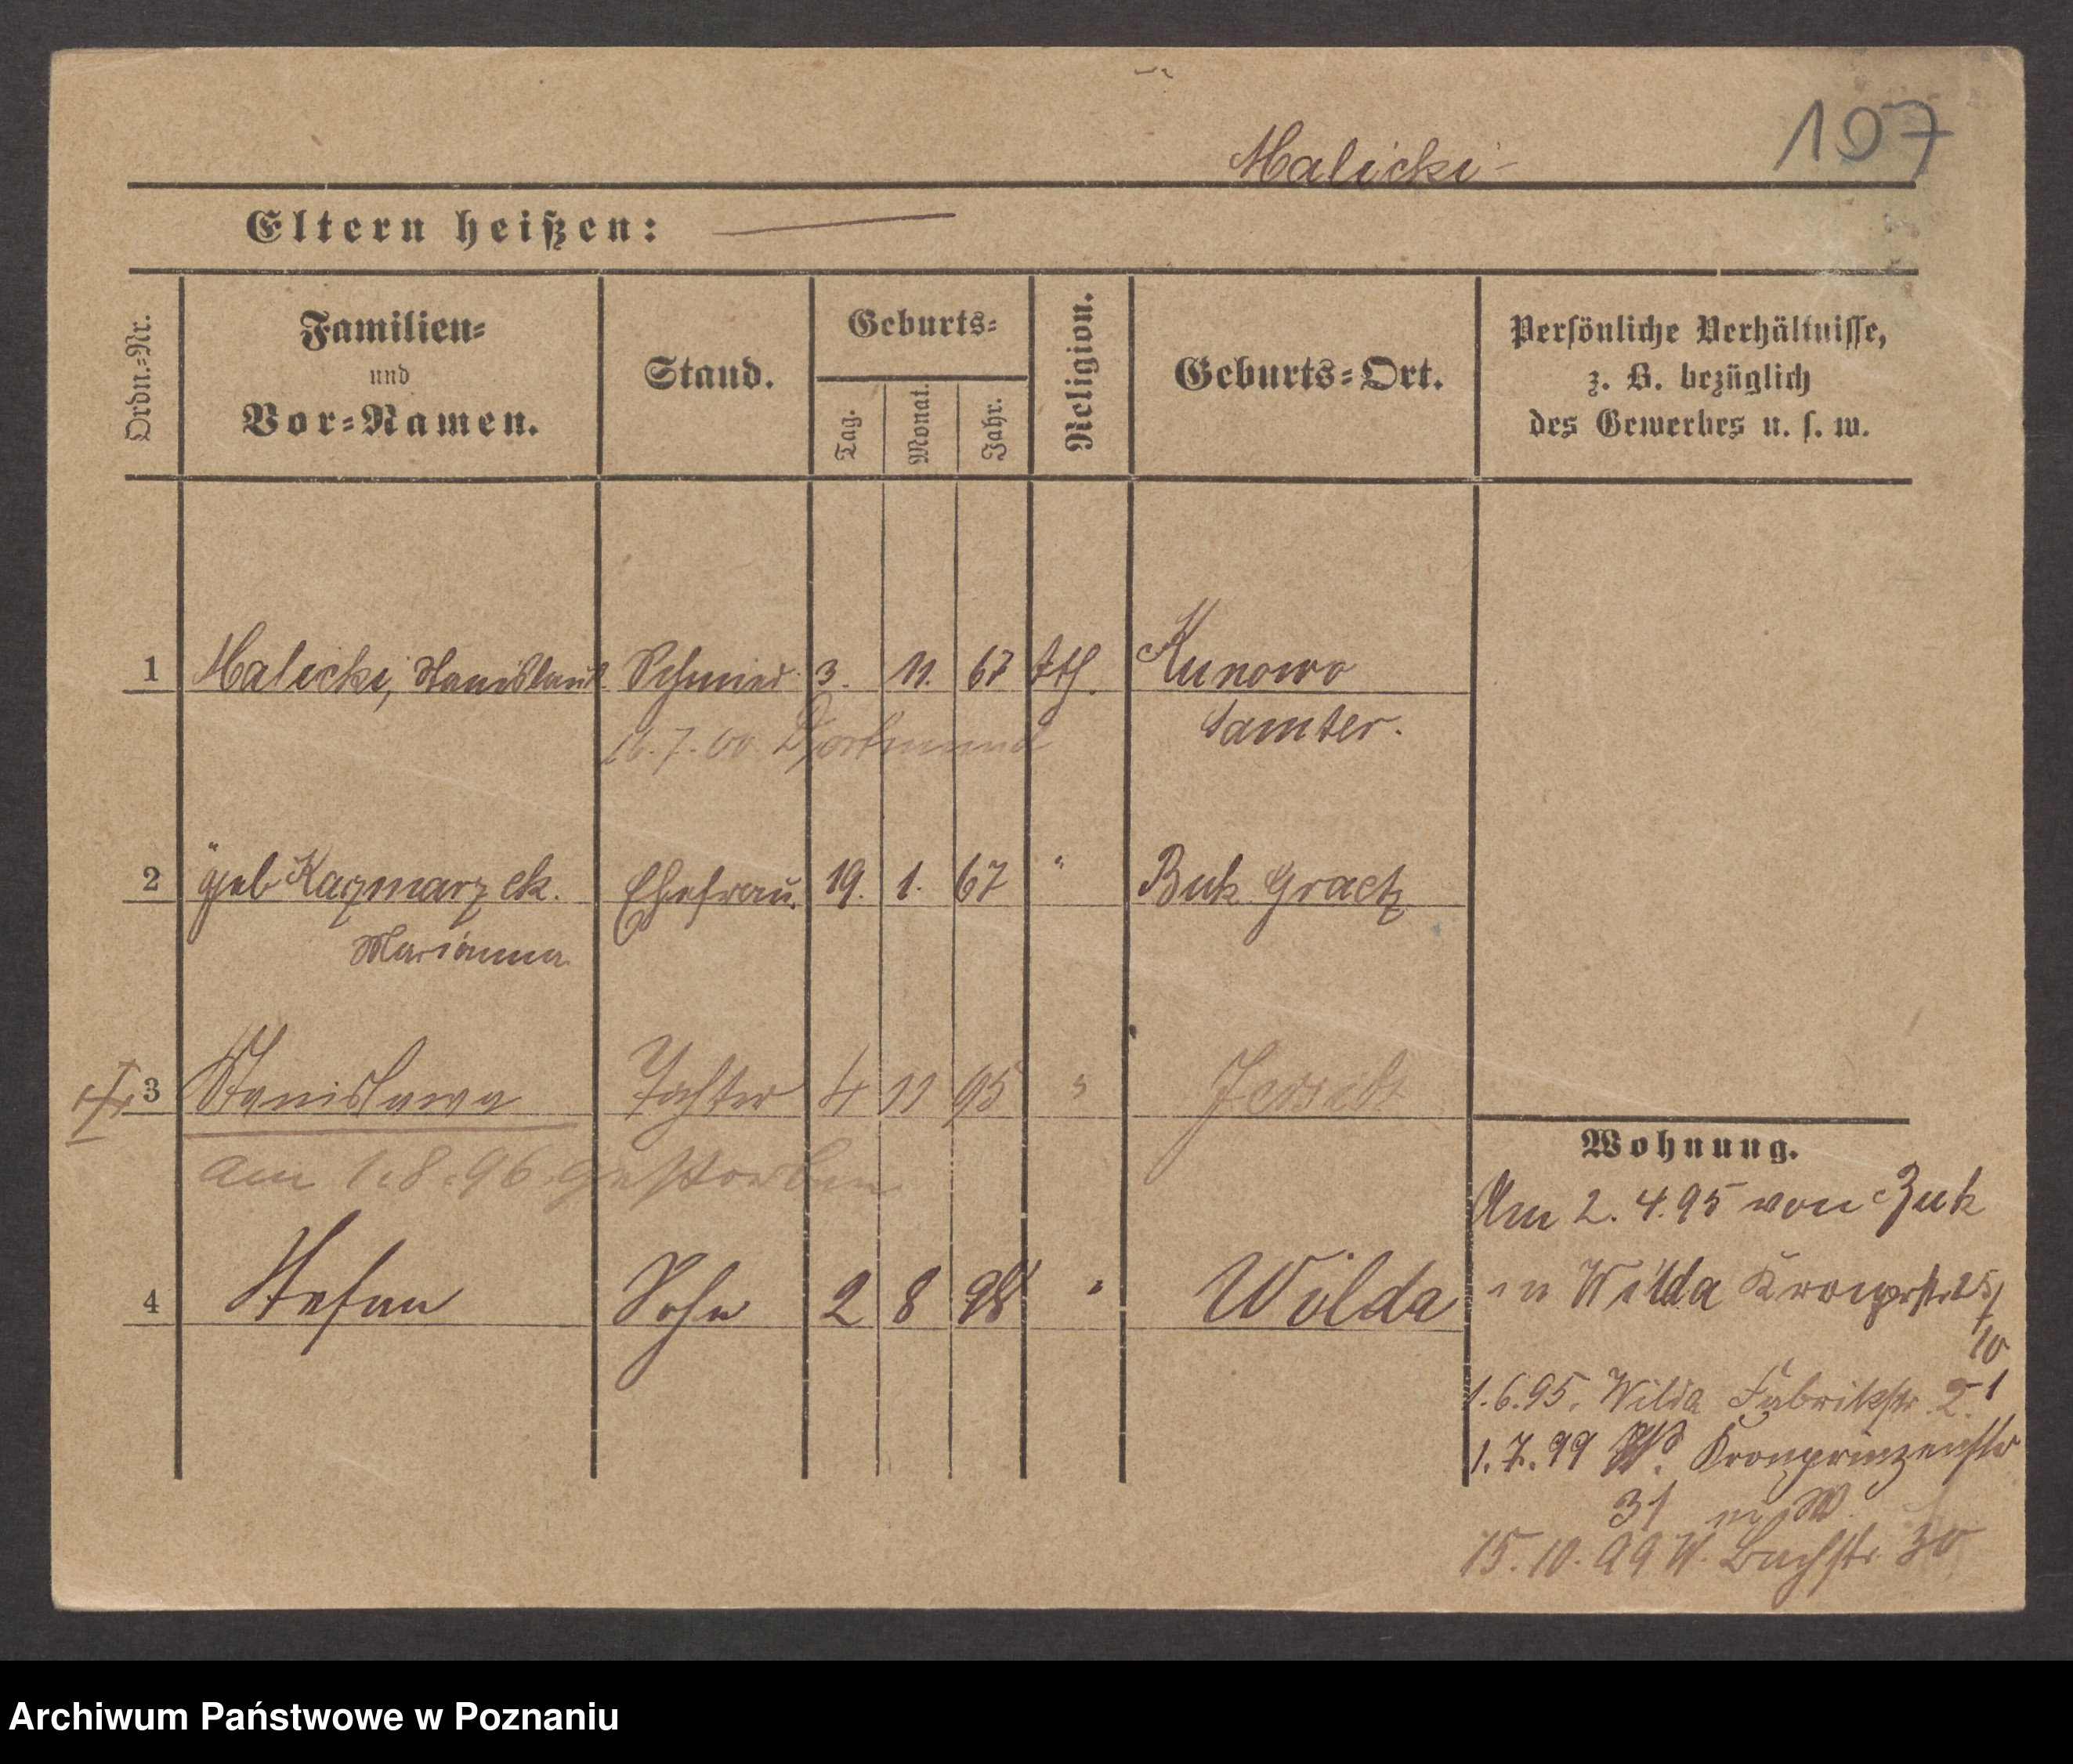 197
Malicki
Eltern heißen:
Ordn.=Nr.
Familien=
und
Vor=Namen.
Stand.
Geburts=
Tag.
Monat.
Jahr.
Religion.
Geburts=Ort.
Persönliche Verhältnisse,
z. B. bezüglich
des Gewerbes u. s. w.
1 Malicki, Stanislaus Schmied 3. 11. 67 kth. Kunowo
Samter.
7. 00. Dortmund
2 geb Kaczmarzek. Ehefrau. 19. 1. 67 " Buk Graetz
Marianna
3 Stanislawa Tochter 4 11 95 " Jersitz
am 1.8.96. gestorben
4 Stefan Sohn 2 8 98 " Wilda
Wohnung.
Am 2.4.95 von Buk
in Wilda Kronprstr 25/
10
1.6.95. Wilda Fabrikstr. 21
1.7.99 W. Kronprinzenstr
31
15.10.99 W. Bachstr. 30
Archiwum Państwowe w Poznaniu